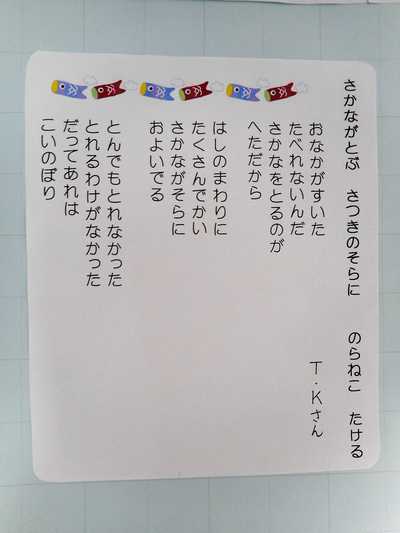 さかながとぶ　さつきのそらに　のらねこ　たける
T・Kさん
おなかがすいた
たべれないんだ
さかなをとるのが
へただから
はしのまわりに
たくさんでかい
さかながそらに
およいでる
とんでもとれなかった
とれるわけがなかった
だってあれは
こいのぼり